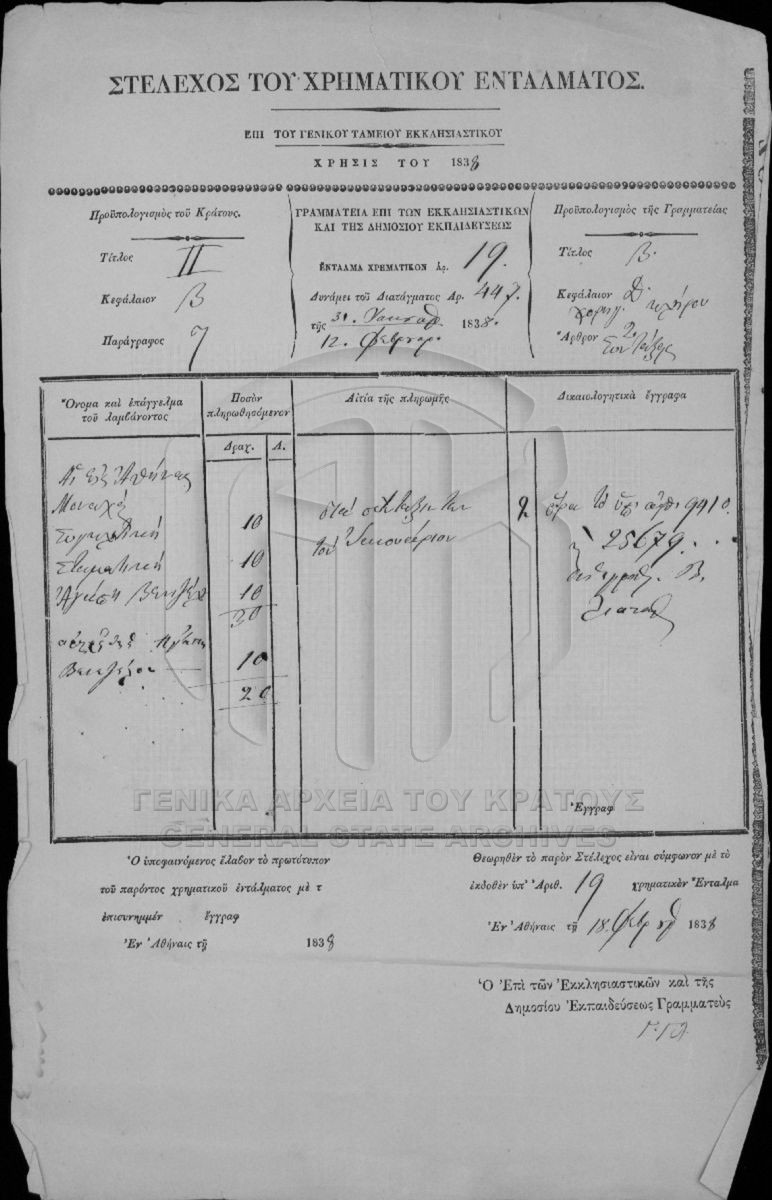 ΣΤΕΛΕΧΟΣ ΤΟΥ ΧΡΗΜΑΤΙΚΟΥ ΕΝΤΑΛΜΑΤΟΣ.
ΕΠΙ ΤΟΥ ΓΕΝΙΚΟΥ ΤΑΜΕΙΟΥ ΕΚΚΛΗΣΙΑΣΤΙΚΟΥ
ΧΡΗΣΙΣ ΤΟΥ 1838
Προϋπολογισμὸς τοῦ Κράτους.
Τίτλος II
Κεφάλαιον Β
Παράγραφος 7
ΓΡΑΜΜΑΤΕΙΑ ΕΠΙ ΤΩΝ ΕΚΚΛΗΣΙΑΣΤΙΚΩΝ
ΚΑΙ ΤΗΣ ΔΗΜΟΣΙΟΥ ΕΚΠΑΙΔΕΥΣΕΩΣ
ΕΝΤΑΛΜΑ ΧΡΗΜΑΤΙΚΟΝ Ἀρ. 19.
Δυνάμει τοῦ Διατάγματος Αρ. 447.
τῆς 31. 1838.
12. Φεβρουαρ.
Προϋπολογισμὸς τῆς Γραμματείας
Τίτλος Β.
Κεφάλαιον Δ.
κλήρου
Ἄρθρον 2.
Συντάξεις
Ὄνομα καὶ ἐπάγγελμα
τοῦ λαμβάνοντος
Ποσὸν
πληρωθησόμενον
Αἰτία τῆς πληρωμῆς
Δικαιολογητικὰ ἔγγραφα
Δραχ. Λ.
Αἱ εἰς Ἀθήνας
Μοναχαὶ
10
10
10
30
10
20
τοῦ Ἰανουάριον
2
9910.
25679.
Β.
Ἔγγραφ
ΓΕΝΙΚΑ ΑΡΧΕΙΑ ΤΟΥ ΚΡΑΤΟΥΣ
GENERAL STATE ARCHIVES
Ὁ ὑποφαινόμενος ἔλαβον τὸ πρωτότυπον
τοῦ παρόντος χρηματικοῦ ἐντάλματος μὲ τ
ἐπισυνημμέν ἔγγραφ
Ἐν Ἀθήναις τῇ 1838
Θεωρηθὲν τὸ παρὸν Στέλεχος εἶναι σύμφωνον μὲ τὸ
ἐκδοθὲν ὑπ' Ἀριθ. 19 χρηματικὸν Ἔνταλμα
Ἐν Ἀθήναις τῇ 18. Φεβρ 1838
Ὁ Ἐπὶ τῶν Ἐκκλησιαστικῶν καὶ τῆς
Δημοσίου Ἐκπαιδεύσεως Γραμματεὺς